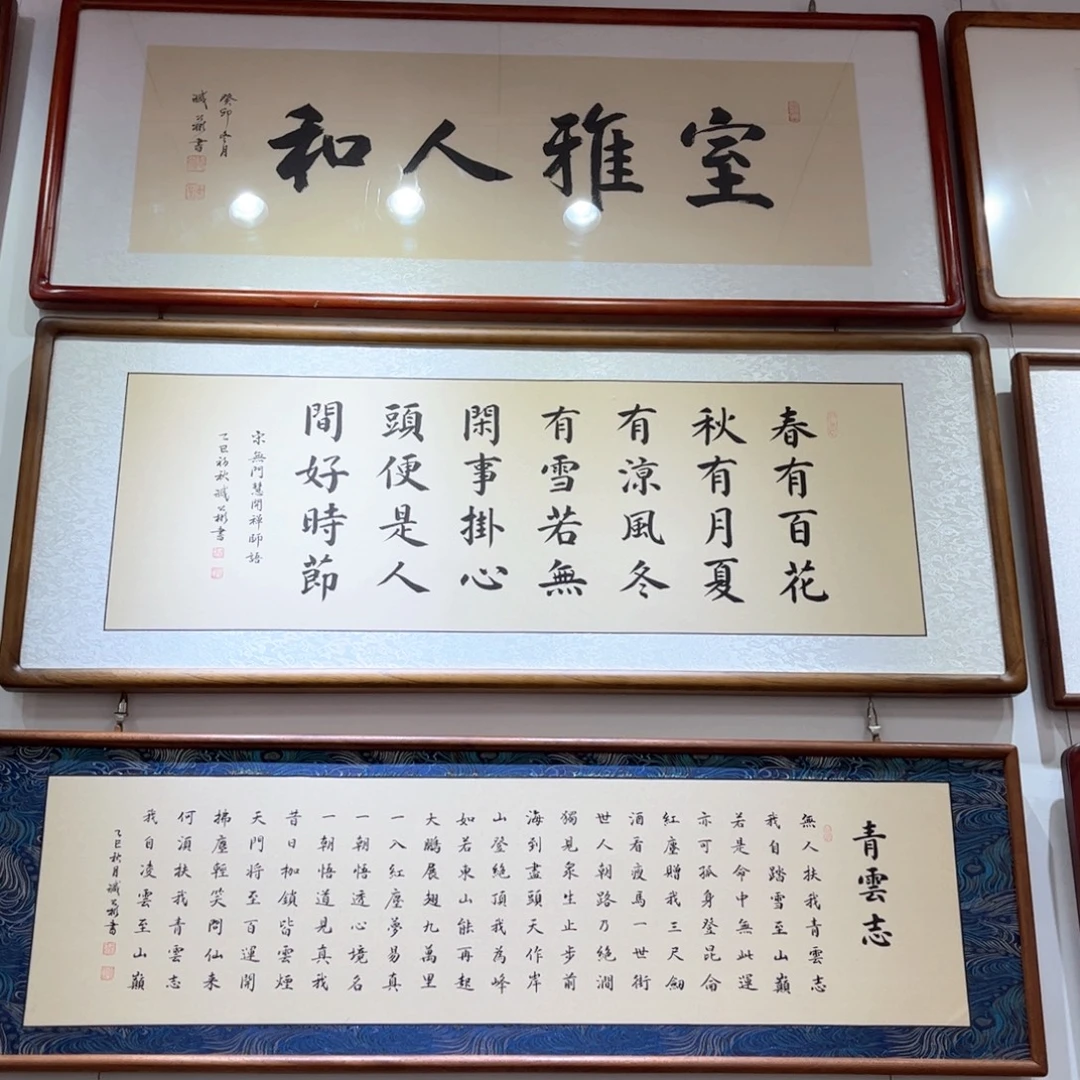 室雅人和
癸卯冬月
臧 彬書
春有百花
秋有月夏
有涼風冬
有雪若無
閑事掛心
頭便是人
間好時節
宋無門慧開禪師語
乙巳初秋臧 彬書
青雲志
無人扶我青雲志
我自踏雪至山巔
若是命中無此運
亦可孤身登昆侖
紅塵贈我三尺劍
酒看瘦馬一世街
世人朝路乃絕澗
獨見眾生止步前
海到盡頭天作岸
山登絕頂我為峰
如若東山能再起
大鵬展翅九萬里
一入紅塵夢易真
一朝悟透心境名
一朝悟道見真我
昔日枷鎖皆雲煙
天門將至百運開
拂塵輕笑問仙來
何須扶我青雲志
我自凌雲至山巔
乙巳秋月臧 彬書